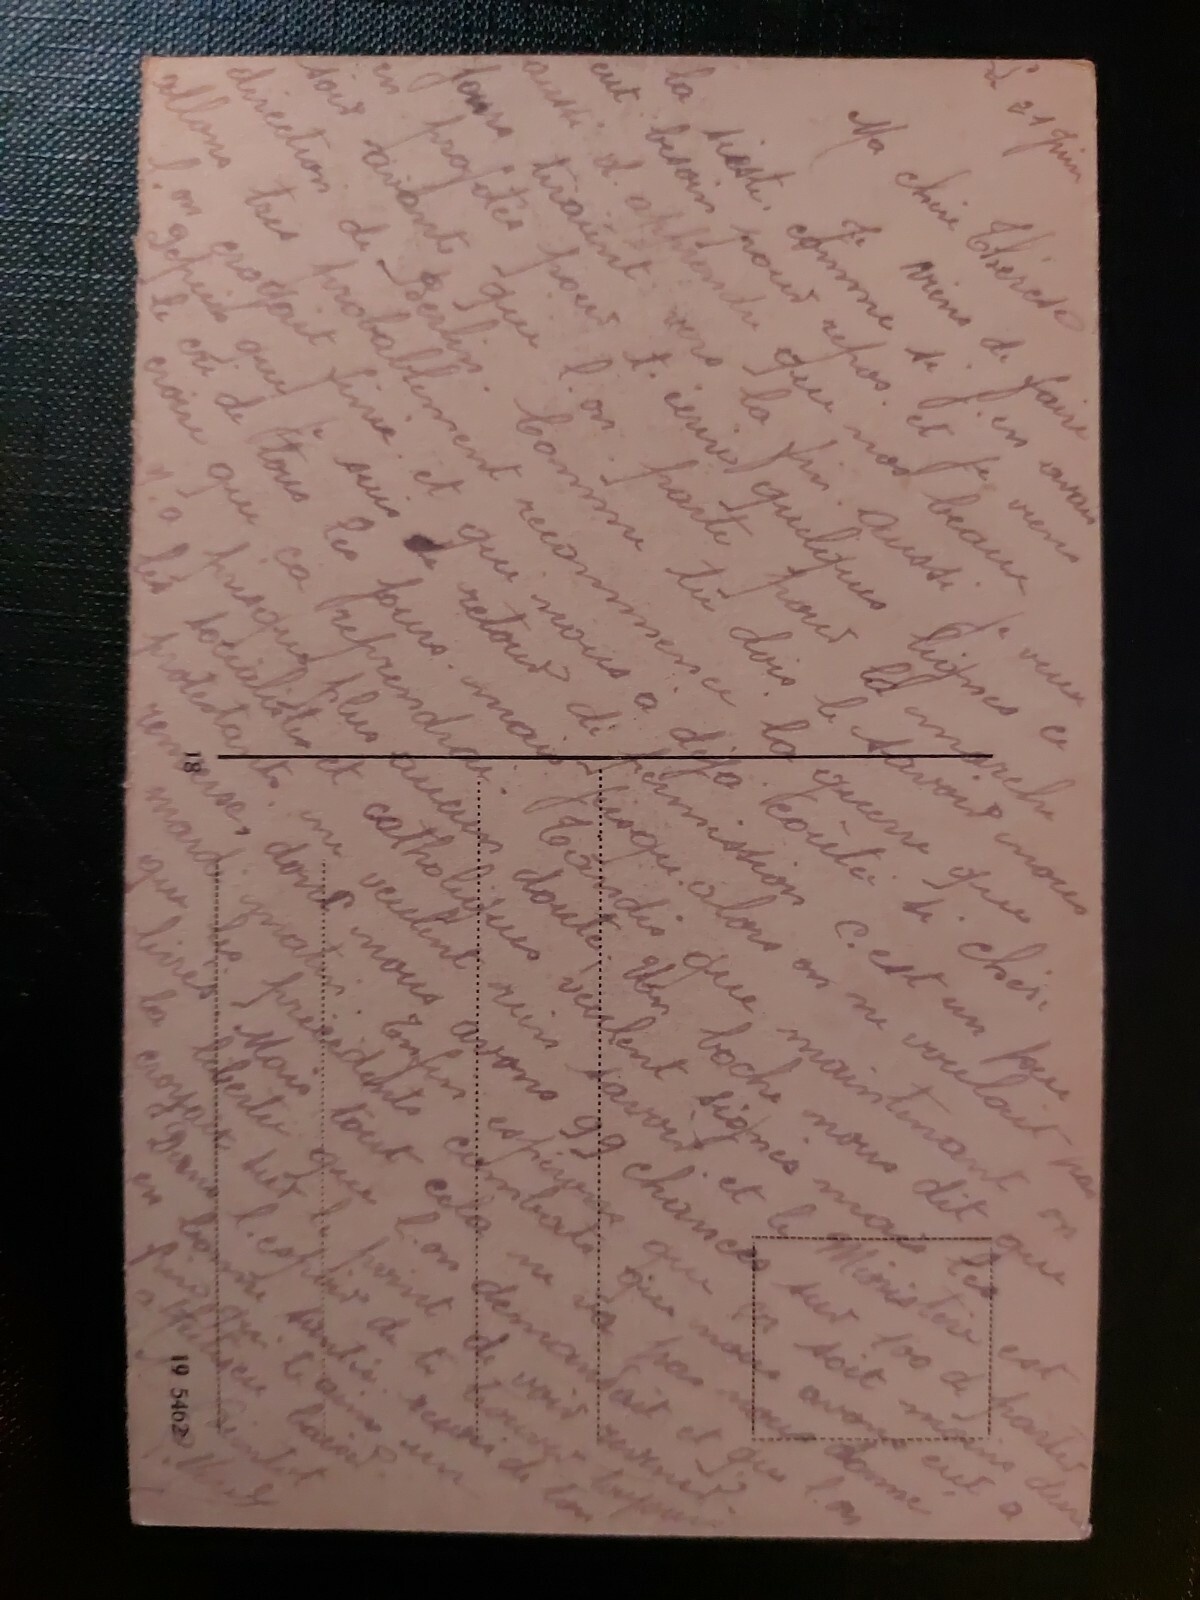 Le 21 Juin
Ma chère Thérèse
Je viens de faire
la sieste, comme si j'en avais
eut besoin pour repos. et je viens
aussi d'apprendre que nos beaux
jours tiraient vers la fin. aussi je veux
en profiter pour t'écrire quelques lignes ce
soir avant que l'on parte pour la marche
direction de Berlin. Comme tu dois le savoir nous
allons très probablement recommence la guerre que
l'on croyait finie et qui nous a déjà coûté si cher.
Depuis que je suis de retour de permission c'est un peu
le cri de tous les jours. mais jusqu'alors on ne voulait pas
croire que ça reprendrai. Tandis que maintenant on
n'a presque plus aucun doute. Un boche nous dit que
les socialistes et catholiques veulent signés mais les
protestants ne veulent rien savoir et le Ministère est
renversé, dont nous avons 99 chances sur 100 de partir
mardi matin. Enfin espérons que ça soit moins dur
que les précédents combats que nous avons eut à
livrés. Mais tout cela ne va pas nous donné
la liberté que l'on demandait et que l'on
croyait sur le point de voir revenir.
Dans l'espoir de te toujours
en bonne santé. reçoit de ton
qui t'aime un
18
19 5462